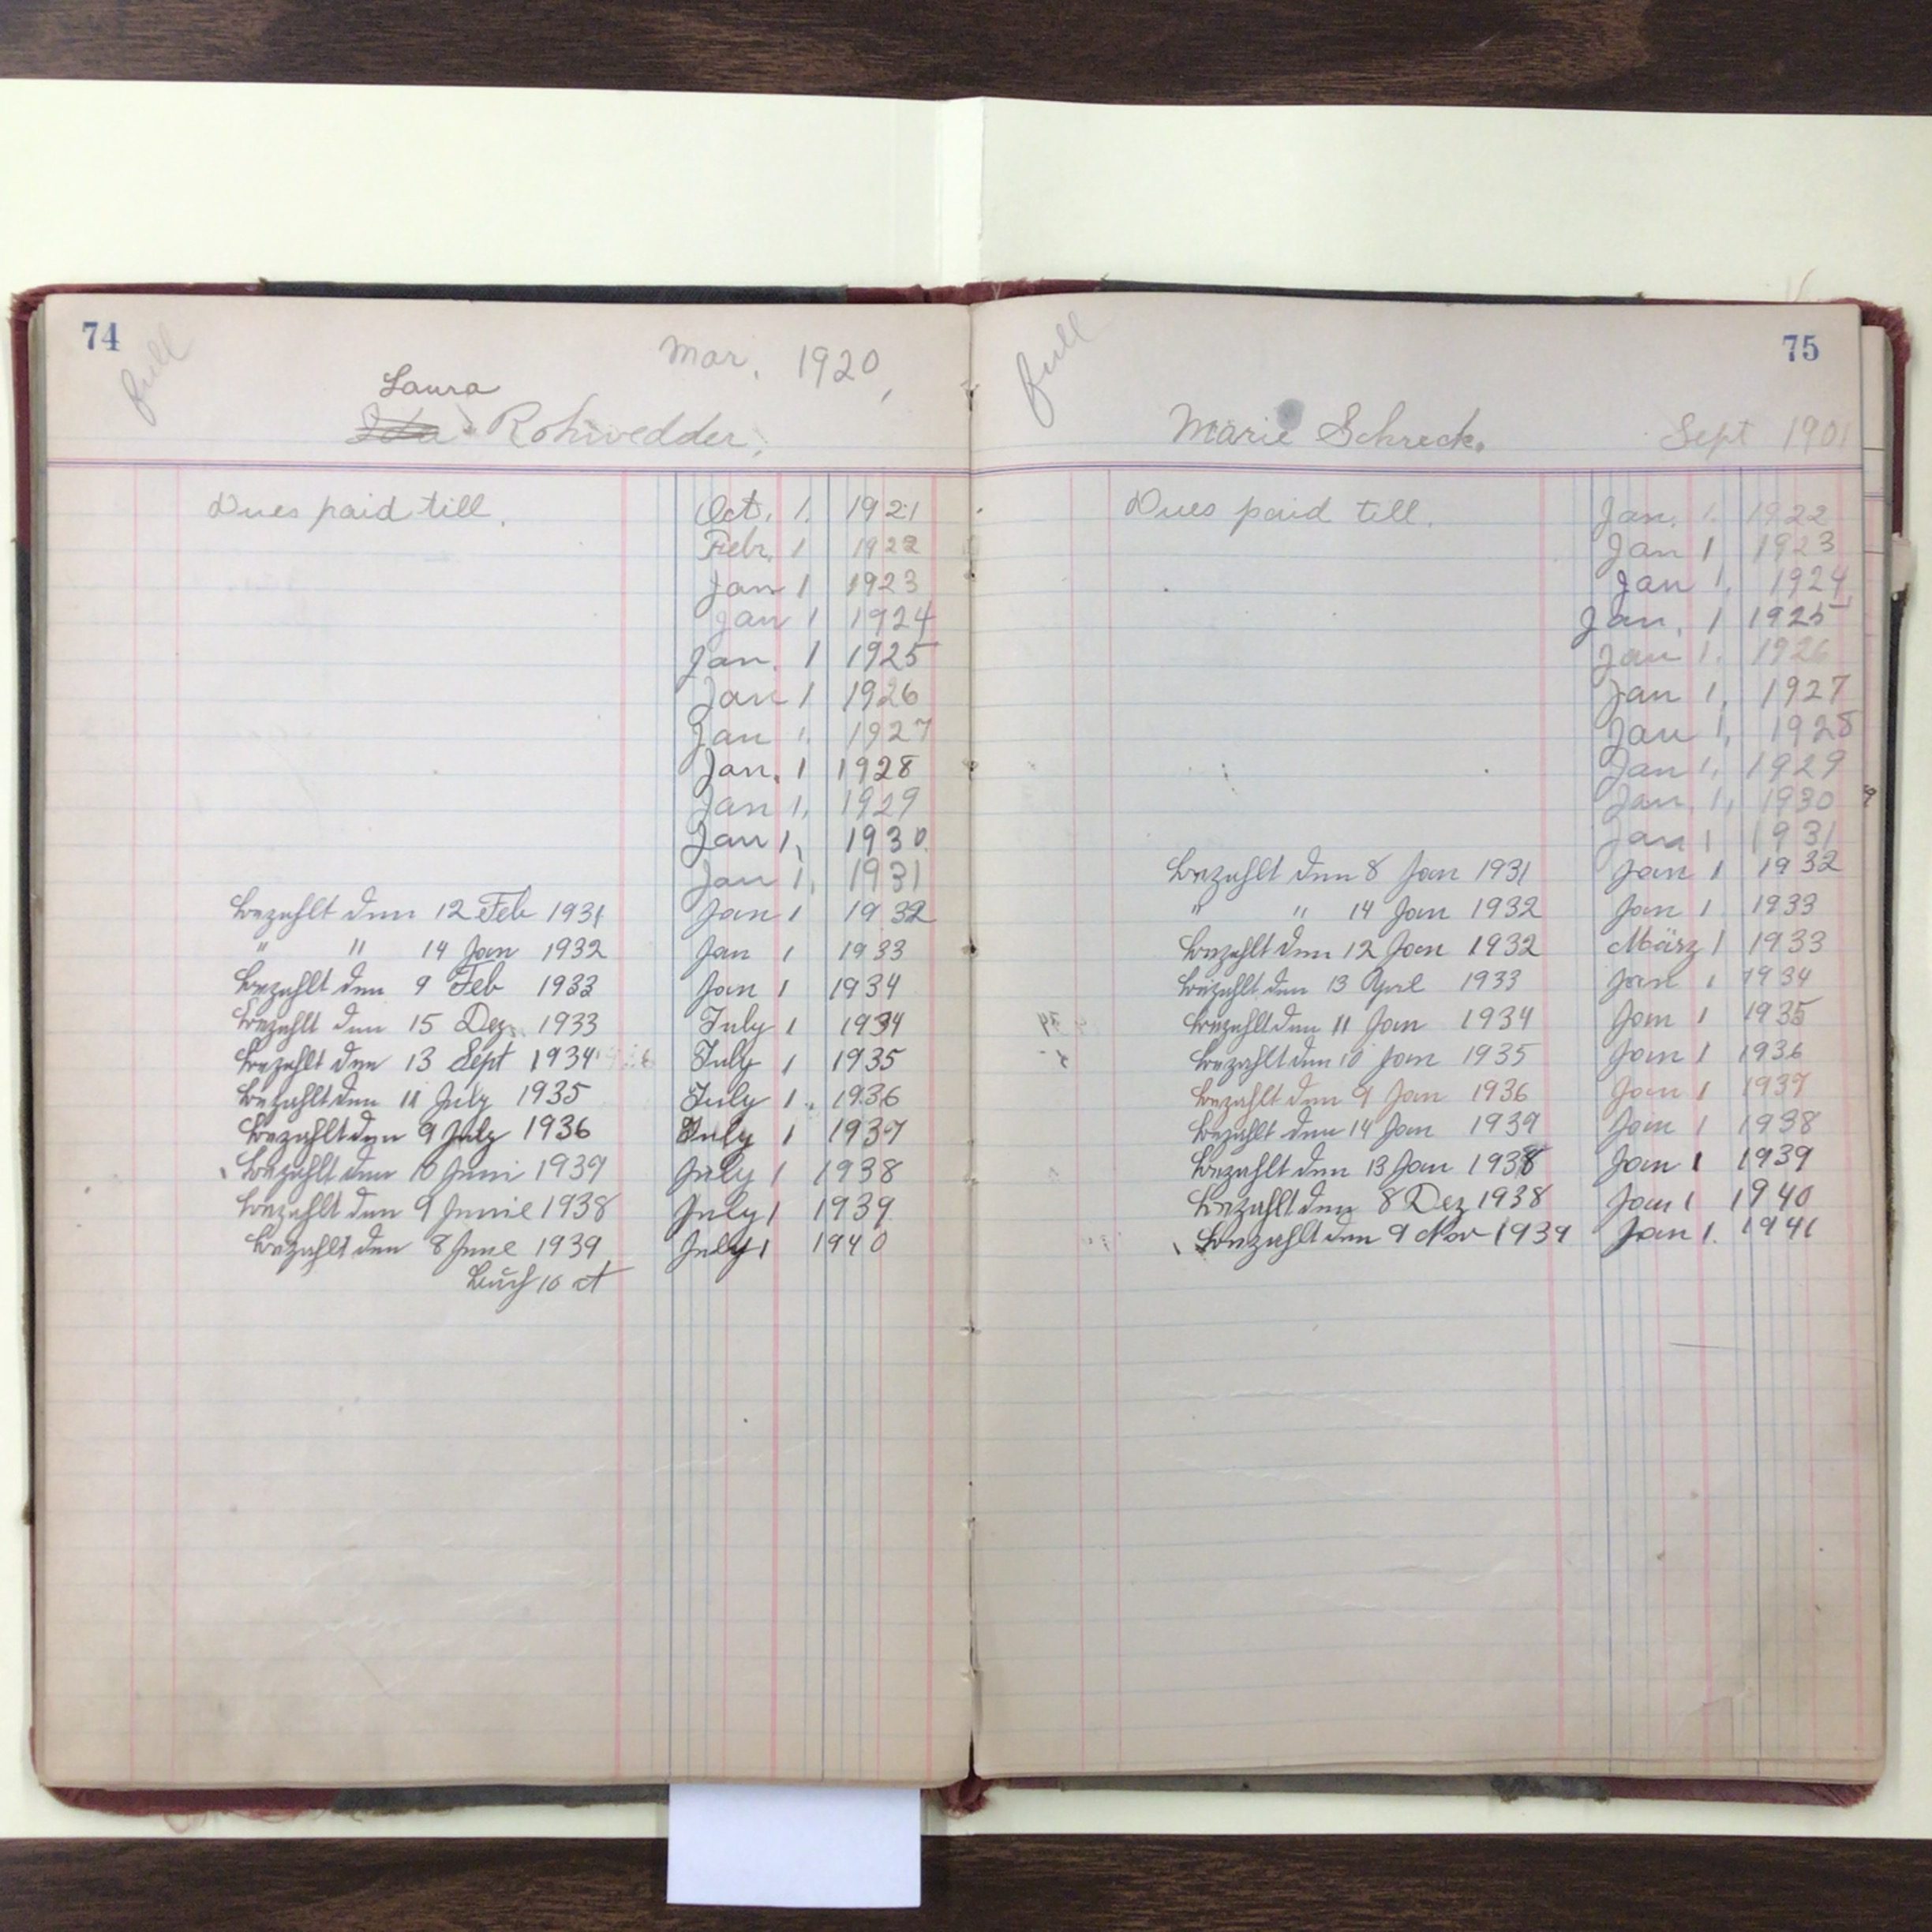 74
full
Mar. 1920,
Laura
Ida Rohwedder,
Dues paid till. Oct. 1. 1921
Febr. 1 1922
Jan 1 1923
Jan 1 1924
Jan. 1 1925
Jan 1 1926
Jan 1. 1927
Jan. 1 1928
Jan 1, 1929
Jan 1, 1930.
Jan 1, 1931
bezahlt den 12 Feb 1931 Jan 1 1932
" " 14 Jan 1932 Jan 1 1933
bezahlt den 9 Feb 1933 Jan 1 1934
bezahlt den 15 Dez. 1933 July 1 1934
bezahlt den 13 Sept 1934 July 1 1935
bezahlt den 11 July 1935 July 1. 1936
bezahlt den 9 July 1936 July 1 1937
bezahlt den 10 Juni 1937 July 1 1938
bezahlt den 9 Junie 1938 July 1 1939
bezahlt den 8 June 1939 July 1 1940
Buch 10 ct
75
full
Marie Schreck. Sept 1901
Dues paid till. Jan. 1. 1922
Jan 1 1923
Jan 1, 1924
Jan. 1 1925
Jan 1. 1926
Jan 1, 1927
Jan 1, 1928
Jan 1, 1929
Jan. 1, 1930
Jan 1 1931
bezahlt den 8 Jan 1931 Jan 1 1932
" " 14 Jan 1932 Jan 1 1933
bezahlt den 12 Jan 1932 März 1 1933
bezahlt den 13 April 1933 Jan 1 1934
bezahlt den 11 Jan 1934 Jan 1 1935
bezahlt den 10 Jan 1935 Jan 1 1936
bezahlt den 9 Jan 1936 Jan 1 1937
bezahlt den 14 Jan 1937 Jan 1 1938
bezahlt den 13 Jan 1938 Jan 1 1939
bezahlt den 8 Dez 1938 Jan 1 1940
bezahlt den 9 Nov 1939 Jan 1. 1941